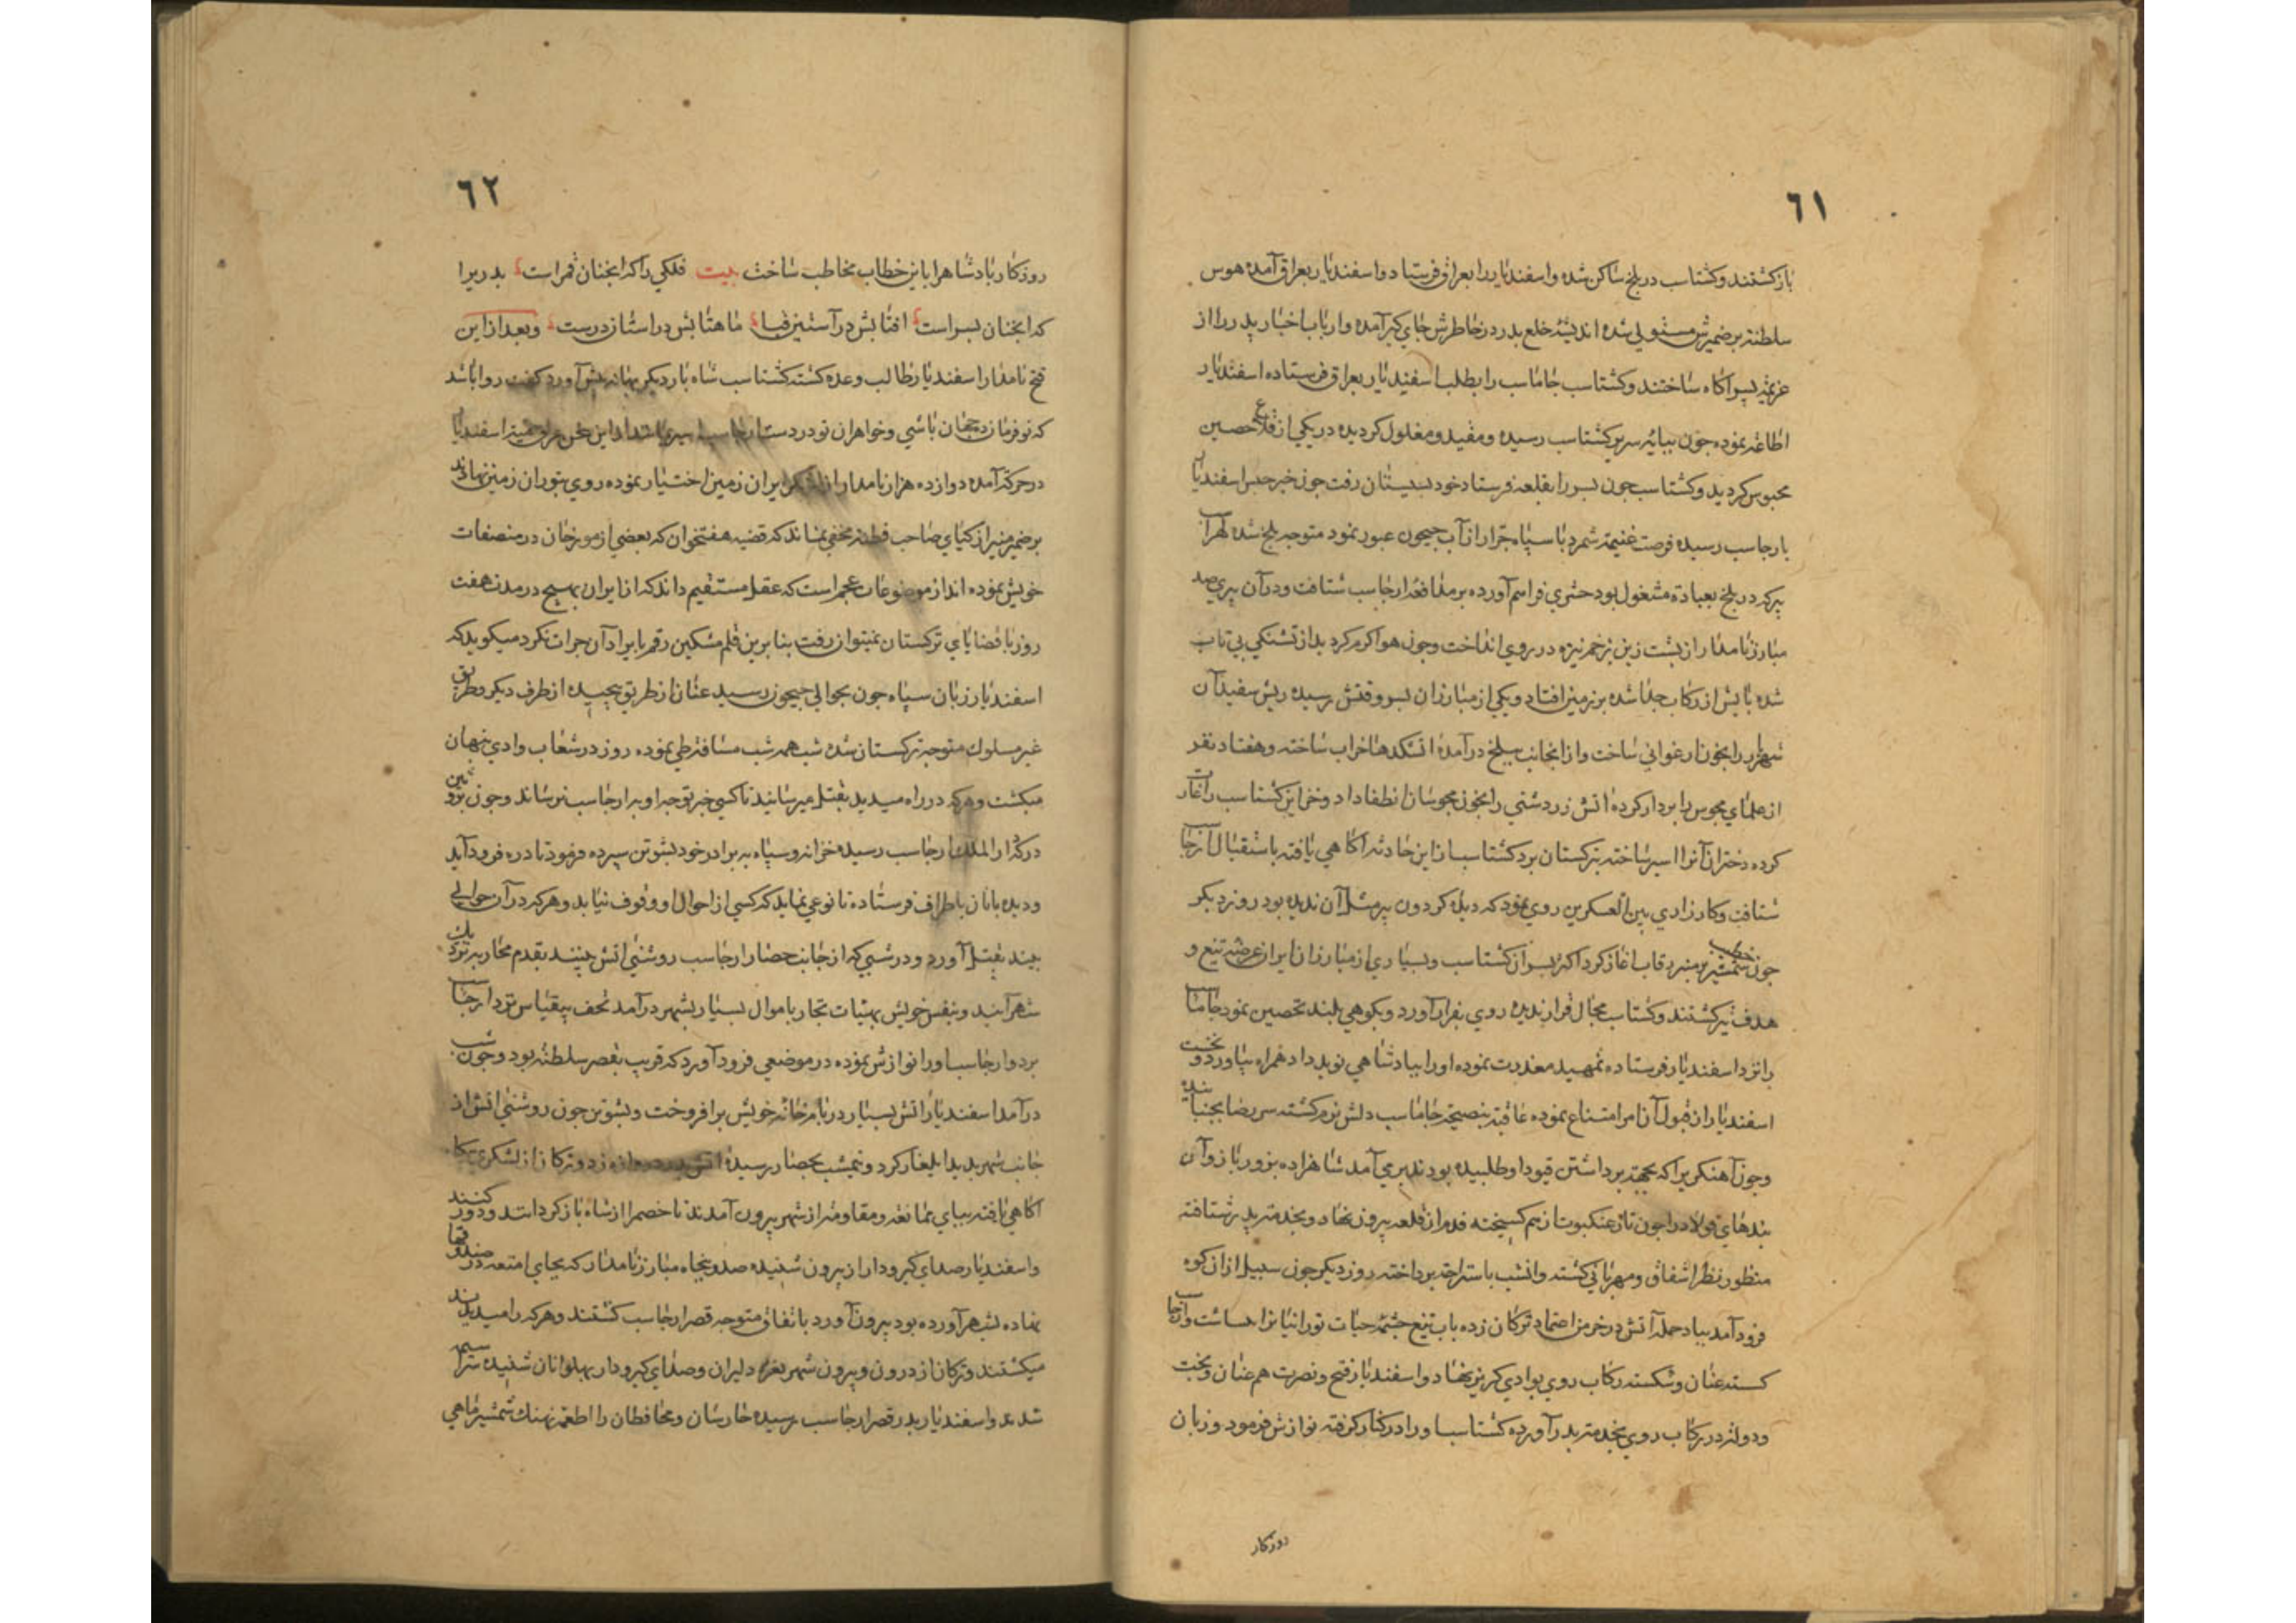 ٦١
باز كشتند وكشتاسب در بلخ ساكن شده واسفنديار را بعراق فرستاد واسفنديار بعراق آمده هوس
سلطنة بر ضميرش مستولي شده انديشهٔ خلع پدر در خاطرش جاي كير آمده وارباب اخبار پدر را از
عزيمة پسر آكاه ساختند وكشتاسب جاماسب را بطلب اسفنديار بعراق فرستاده اسفنديار
اطاعة نموده جون بپايه سرير كشتاسب رسيده ومقيد ومغلول كرديده در يكي از قلاع حصين
محبوس كرديد وكشتاسب جون پسر را بقلعه فرستاد خود بسيستان رفت جون خبر حبس اسفنديار
بارجاسب رسيده فرصت غنيمة شمرد با سپاه جرار از آب جيحون عبور نمود متوجه بلخ شده لهراسب
پير كه در بلخ بعبادة مشغول بود حشري فراهم آورده بر مدافعهٔ ارجاسب شتافت ودر آن پيري صد
مبارز نامدار از پشت زين بزخم نيزه در روي انداخت وجون هوا كرم كرديد از تشنكي بي تاب
شده پايش از ركاب جدا شده بر زمين افتاد ويكي از مبارزان بسر وقتش رسيده ريش سفيد آن
شهريار را بخون ارغواني ساخت واز انجانب ببلخ در آمده اتشكدها خراب ساخته وهفتاد نفر
از علماي مجوس را بر دار كرده اتش زردشتي را بخون مجوسان انطفا داد وخزاين كشتاسب را غارت
كرده دختران آنرا اسير ساخته بتركستان برد كشتاسب از اين حادثه آكاهي يافته باستقبال ارجاسب
شتافت وكارزاري بين العسكرين روي نمود كه ديدهٔ كردون پير مثل آن نديده بود روز ديكر
جون خطيب شمشير بر منبر رقاب اغاز كرد اكثر پسران كشتاسب وبسياري از مبارزان ايران عرضهٔ تيغ و
هدف تير كشتند وكشتاسب مجال قرار نديده روي بفرار آورد وبكوهي بلند تحصين نمود جاماسب
را نزد اسفنديار فرستاده تمهيد معذرت نموده اورا بپادشاهي نويد داد همراه بياورد ونخست
اسفنديار از قبول آن امر امتناع نموده عاقبة بنصيحة جاماسب دلش نرم كشته سر رضا بجنبانيده
وجون آهنكري را كه بجهة برداشتن قيود او طلبيده بودند دير مي آمد شاهزاده بزور بازو آن
بندهاي فولاد را جون تار عنكبوت از هم كسيخته قدم از قلعه بيرون نهاد وبخدمة پدر شتافته
منظور نظر اشفاق ومهرباني كشته وانشب باستراحة پرداخته روز ديكر جون سيل از ان كوه
فرود آمد بباد حمله آتش در خرمن اعتماد تركان زده باب تيغ جشمهٔ حيات تورانيانرا انباشت وارجاسب
كسسته عنان وشكسته ركاب روي بوادي كريز نهاد واسفنديار فتح ونصرت هم عنان وبخت
ودولة در ركاب روي بخدمة پدر آورده كشتاسب اورا در كنار كرفته نوازش فرمود وزبان
روزكار
٦٢
روزكار پادشاه را باين خطاب مخاطب ساخت بيت فلكي را كه انجنان قمر است پدريرا
كه انجنان پسر است افتابش در آستين قبا ماهتابش در استان درست وبعد از اين
فتح نامدار اسفنديار طالب وعده كشته كشتاسب شاه بار ديكر بهانه پيش آورد كفت روا باشد
كه تو فرمان ده جهان باشي وخواهران تو در دست ارجاسب اسير باشند از اين سخن عرق حمية اسفنديار
در حركة آمده دوازده هزار نامدار از لشكر ايران زمين اختيار نموده روي بتوران زمين نهادند
بر ضمير منير اذكياي صاحب فطنه مخفي نماند كه قضيه هفتخوان كه بعضي از مورخان در مصنفات
خويش نموده اند از موضوعات عجم است كه عقل مستقيم داند كه از ايران بهيج در مدت هفت
روز باقصاياي تركستان نميتوان رفت بنابرين قلم مشكين رقم بايراد آن جرات نكرد ميكويد كه
اسفنديار زبان سپاه جون بحوالي جيحون رسيد عنان از طريق پيجيده از طرف ديكر وطريق
غير مسلوك متوجه تركستان شده شب همه شب مسافة طي نموده روز در شعاب وادي پنهان
ميكشت وهركه در راه ميديد بقتل ميرسانيد تا كسي خبر توجه او به ارجاسب نرساند وجون بروئين
دز كه دار الملك ارجاسب رسيده خزانه وسپاه به برادر خود بشوتن سپرده فرمود تا در ه فرود آيد
وديده بانان باطراف فرستاده تا نوعي نمايد كه كسي از احوال او وقوف نيابد وهركه در آن حوالي
بيند بقتل آورد ودر شبي كه از جانب حصار ارجاسب روشني اتش بينند بقدم محاربه نزديك
شهر آيند وبنفس خويش بهيئات تجار با موال بسيار بشهر در آمد تحف بيقياس نزد ارجاسب
برد وارجاسب اورا نوازش نموده در موضعي فرود آورد كه قريب بقصر سلطنة بود وجون شب
در آمد اسفنديار اتش بسيار در بام خانه خويش بر افروخت وبشوتن جون روشني اتش از
جانب شهر بديد ايلغار كرد ونيمشب بحصار رسيده اتش در دروازه زد وتركان از لشكر بيكانه
آكاهي يافته بپاي ممانعه ومقاومة از شهر بيرون آمدند تا خصم را از شاه باز كرداند ودور كنند
واسفنديار صداي كيرودار از بيرون شنيده صد وپنجاه مبارز نامدار كه بجاي امتعه در صندوقها
نهاده بشهر آورده بود بيرون آورد باتفاق متوجه قصر ارجاسب كشتند وهركه را ميديدند
ميكشتند وتركان از درون وبيرون شهر نعرهٔ دليران وصداي كيرودار پهلوانان شنيده سراسيمه
شدند واسفنديار بدر قصر ارجاسب رسيده حارسان ومحافظان را طعمهٔ نهنك شمشير ماهي